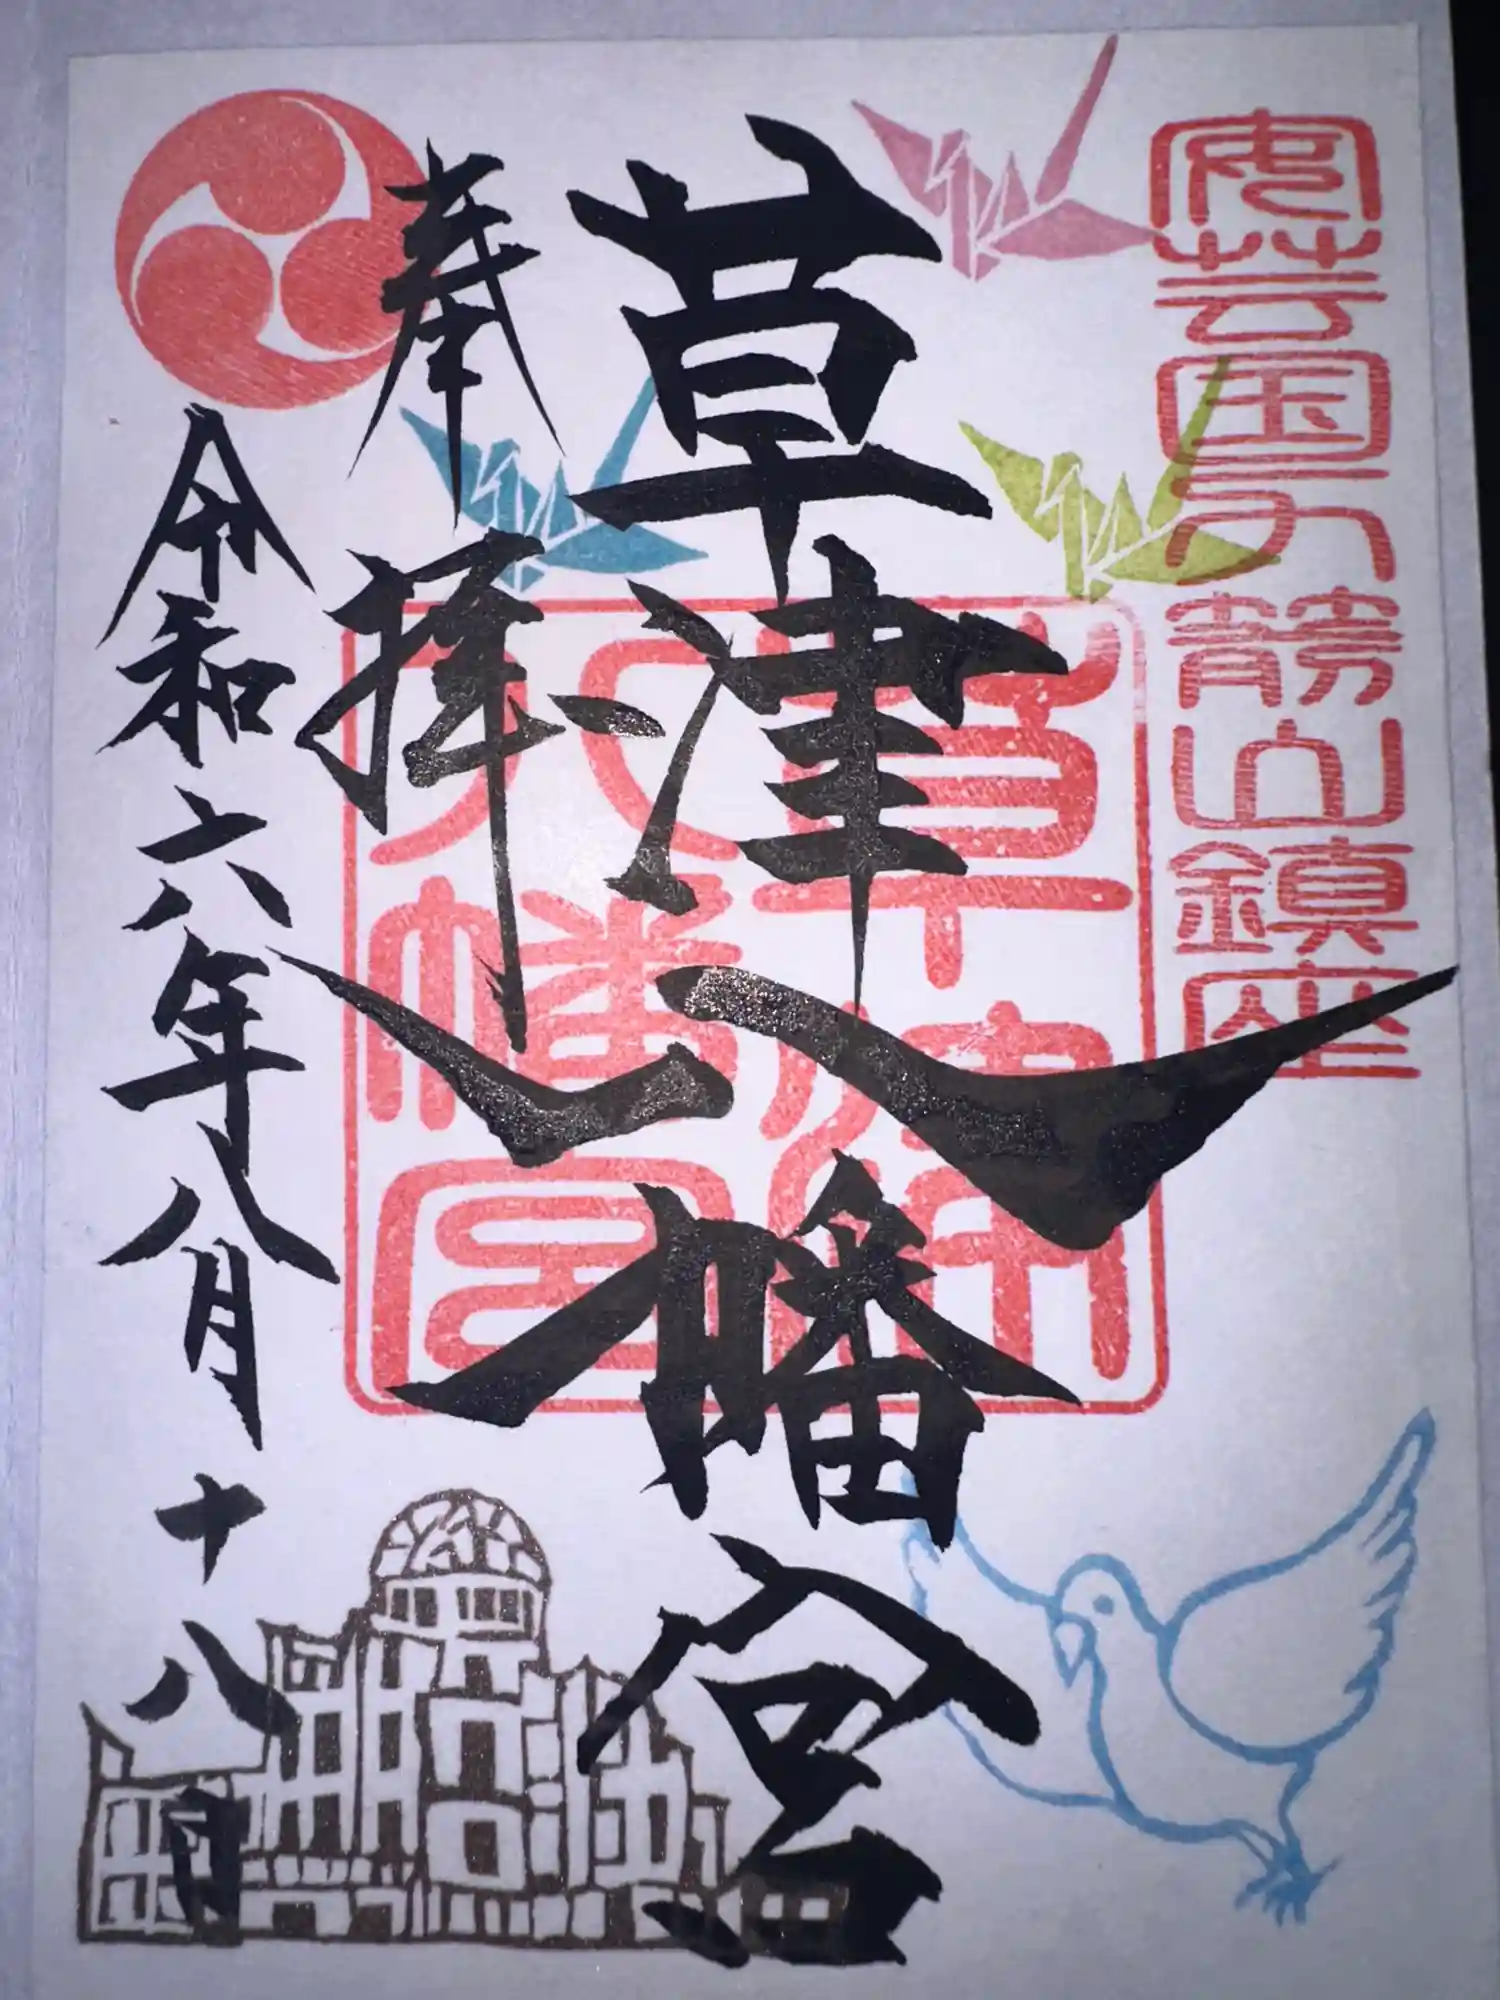 安芸国力箭山鎮座
草津八幡宮
奉拝
令和六年八月十八日
草津
八幡宮